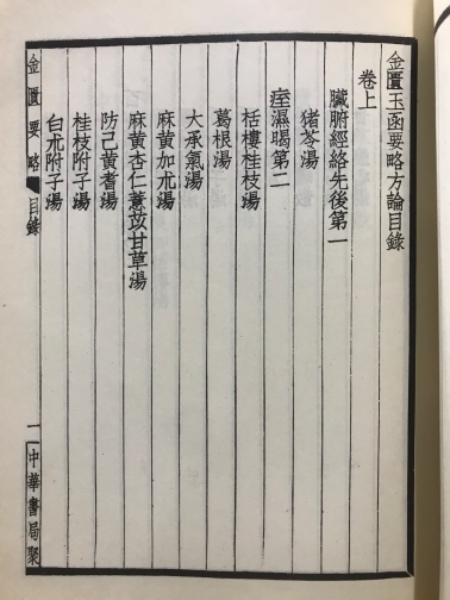 金匱玉函要略方論目錄
卷上
臟腑經絡先後第一
豬苓湯
痓濕暍第二
栝樓桂枝湯
葛根湯
大承氣湯
麻黃加朮湯
麻黃杏仁薏苡甘草湯
防己黃耆湯
桂枝附子湯
白朮附子湯
金匱要略 目錄
一 中華書局聚